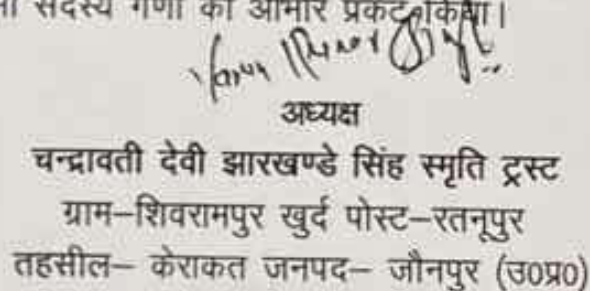 सदस्य गणों का आभार प्रकट किया।
अध्यक्ष
चन्द्रावती देवी झारखण्डे सिंह स्मृति ट्रस्ट
ग्राम–शिवरामपुर खुर्द पोस्ट–रतनूपुर
तहसील– केराकत जनपद– जौनपुर (उ0प्र0)